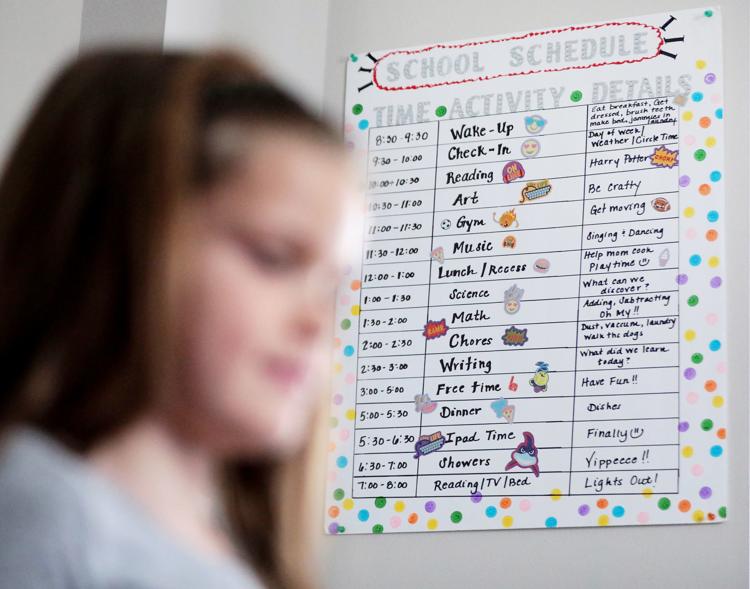 SCHOOL SCHEDULE
TIME ACTIVITY DETAILS
8:30-9:30 Wake-Up Eat breakfast, Get
dressed, brush teeth
make bed, jammies in
laundry
9:30-10:00 Check-In Day of week/
Weather/Circle Time
10:00-10:30 Reading Harry Potter
10:30-11:00 Art Be crafty
11:00-11:30 Gym Get moving
11:30-12:00 Music Singing + Dancing
12:00-1:00 Lunch/Recess Help mom cook
Playtime
1:00-1:30 Science What can we
discover?
1:30-2:00 Math Adding, Subtracting
Oh My!!
2:00-2:30 Chores Dust, vacuum, laundry
walk the dogs
2:30-3:00 Writing What did we learn
today?
3:00-5:00 Free time Have Fun!!
5:00-5:30 Dinner Dishes
5:30-6:30 Ipad Time Finally
6:30-7:00 Showers Yippeeee!!
7:00-8:00 Reading/TV/Bed Lights Out!